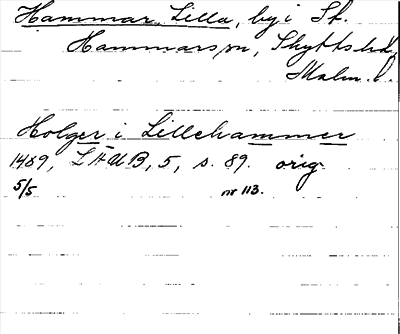 Hammar, Lilla, by i St.
Hammars sn, Skytts hd,
Malm. l.
Holger i Lillehammer
1489, LÄUB, 5, s. 89. orig.
5/5 nr 113.